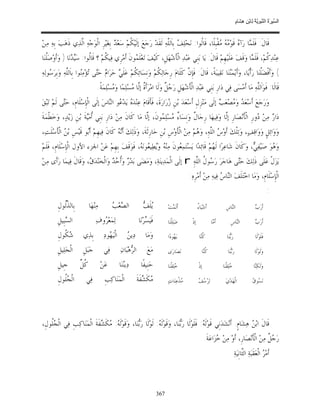 السيرة النبوية لابن هشام
قال فلما رآه قومه مقبلا، قالوا نحلف بالله لقد رجع إليكم سعد بغير الوجه الذي ذهب به من
عندكم، فلما وقف عليهم قال يا بني عبد الأشهل، كيف تعلمون أمري فيكم ؟ قالوا سيدنا [ وأوصلنا
] وأفضلنا رأيا، وأيمننا نقيبة، قال فإن كلام رجالكم ونسائكم علي حرام حتى تؤمنوا بالله وبرسوله
قالا فوالله ما أمسى في دار بني عبد الأشهل رجل ولا امرأة إلا مسلما ومسلمة
ورجع أسعد ومصعب إلى منزل أسعد بن زرارة، فأقام عنده يدعو الناس إلى الإسلام، حتى لم تبق
دار من دور الأنصار إلا وفيها رجال ونساء مسلمون، إلا ما كان من دار بني أمية بن زيد، وخطمة
ووائل وواقف، وتلك أوس الله، وهم من الأوس بن حارثة، وذلك أنه كان فيهم أبو قيس بن الأسلت،
وهو صيفي، وكان شاعرا لهم قائدا يستمعون منه ويطيعونه، فوقف بهم عن الجزء الأول الإسلام، فلم
يزل على ذلك حتى هاجر رسول الله إلى المدينة، ومضى بدر وأحد والخندق، وقال فيما رأى من
الإسلام، وما اختلف الناس فيه من أمره
أرب الناس أشياء ألمت يلف الصعب منها بالذلول
أرب الناس أما إذ ضللنا فيسرنا لمعروف السبيل
فلولا ربنا كنا يهودا وما دين اليهود بذي شكول
ولولا ربنا كنا نصارى مع الرهبان في جبل الجليل
ولكنا خلقنا إذ خلقنا حنيفا ديننا عن كل جيل
نسوق الهدي ترسف مذعنات مكشفة المناكب في الجلول
قال ابن هشام أنشدني قوله فلولا ربنا، وقوله لولا ربنا، وقوله مكشفة المناكب في الجلول،
رجل من الأنصار، أو من خزاعة
أمر العقبة الثانية
367